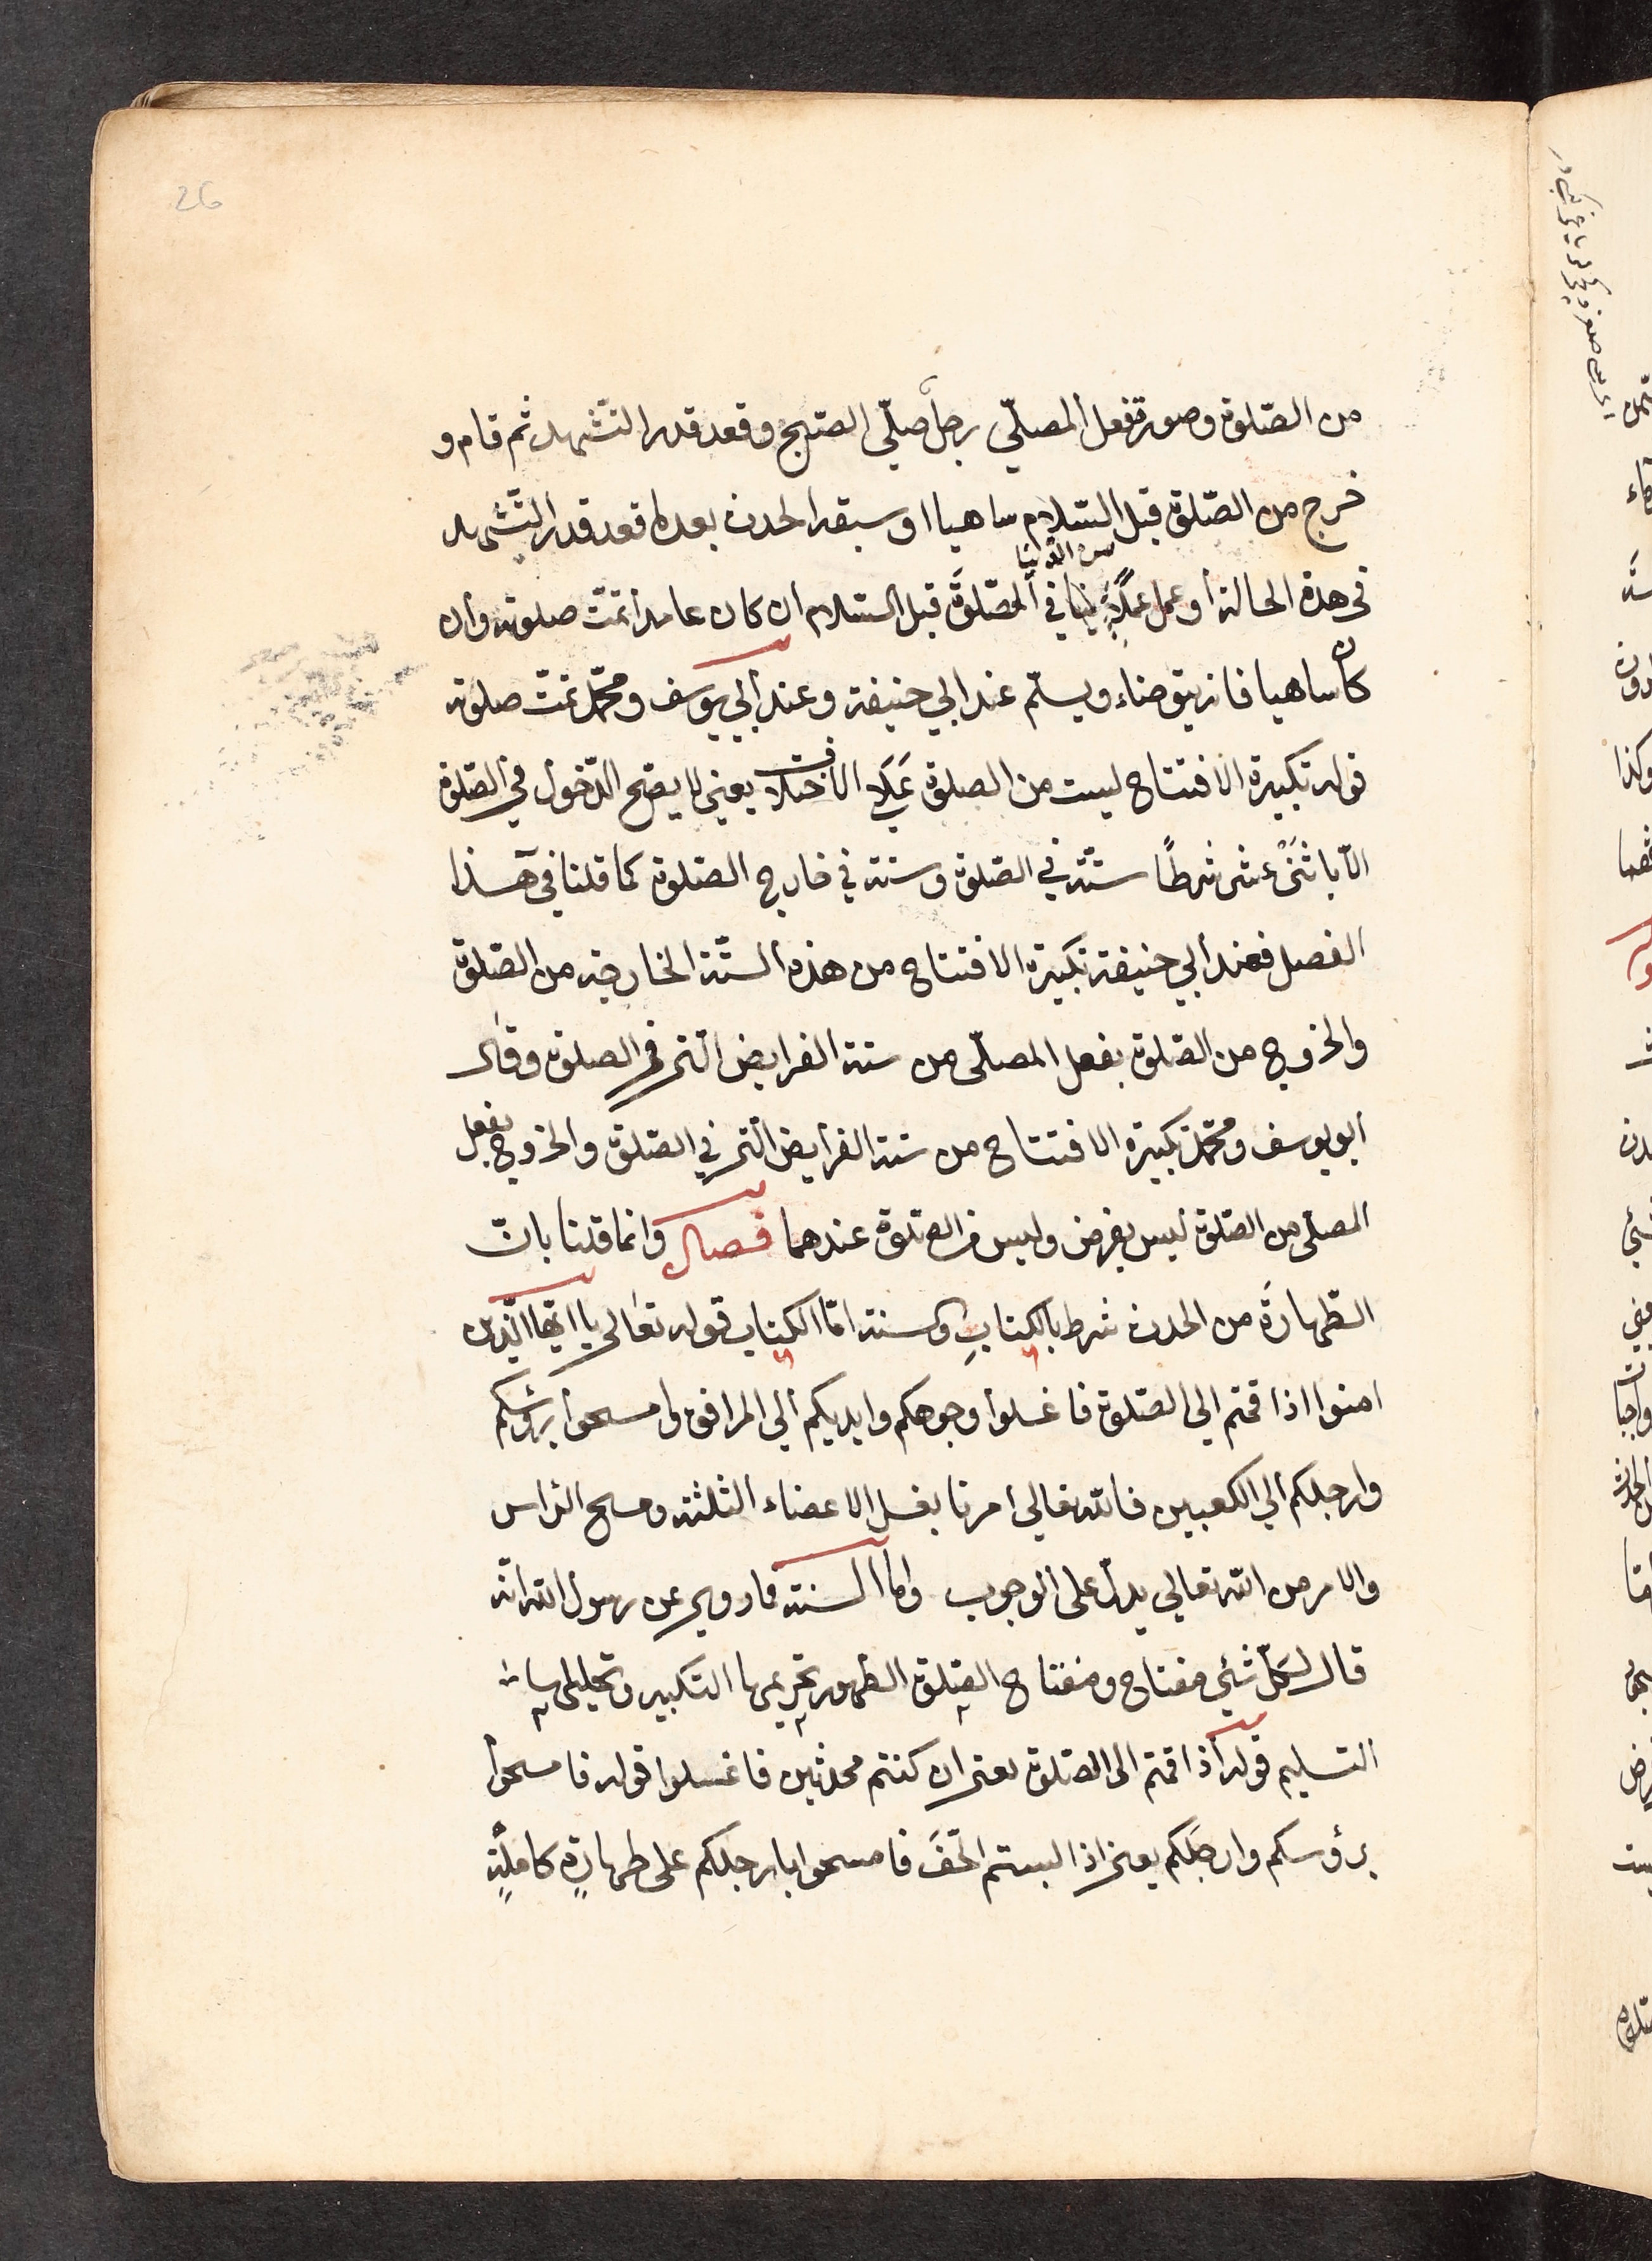 26
من الصّلوة وصورة فعل المصلّي رجل صلّي الصّبح وقعد قدر التّشهد ثم قام و
خرج من الصّلوة قبل السّلام ساهيا او سبقه الحدث بعد ما قعد قدر التّشهد
من الدّنيا
في هذه الحالة أو عمل عملاً في الصّلوة قبل السّلام ان كان عامدا تمّت صلوته وان
كان ساهيا فانه يتوضاء ويسلّم عند ابي حنيفة وعند أبي يوسف ومحمّد تمّت صلوته
قوله تكبيرة الافتتاح ليست من الصلوة عَلَي الاختلاف يعني لا يصّح الدّخول في الصّلوة
الّا باثنَيْ عشر شرطًا ستّة في الصّلوة وستة في خارج الصّلوة كما قلنا في هذا
الفصل فعند أبي حنيفة تكبيرة الافتتاح من هذه السّتّة الخارجة من الصّلوة
والخروج من الصّلوة بفعل المصلّى من ستة الفرايض الّتى في الصلوة وقال
ابو يوسف ومحمّد تكبيرة الافتتاح من ستة الفرايض الّتى في الصّلوة والخروج بفعل
المصلى من الصّلوة ليس بفرض وليس من الصّلوة عندهما فصل وانما قلنا بانّ
الطّهارَة من الحدث شرط بالكتابِ والسنة امّا الكتاب قوله تعالى يا ايّها الّذين
امنوا اذا قمتم الي الصّلوة فاغسلوا وجوهكم وايديكم الي المرافق وامسحوا برؤسكم
وارجلكم الي الكعبين فالله تعالي امرنا بغسل الاعضاء الثلثة ومسح الرّاس
والامر من الله تعالي يدل على الوجوب واما السنة فما روي عن رسول الله انه
قال لكلّ شئي مفتاح ومفتاح الصّلوة الطّهور تحريمها التكبير وتحليلها
التسليم قوله أذا قمتم الى الصّلوة يعنى ان كنتم محدثين فاغسلوا قوله فامسحوا
برؤسكم وارجلَكم يعنى اذا لبستم الخّفَ فامسحوا بارجلكم على طهارةٍ كاملةٍ